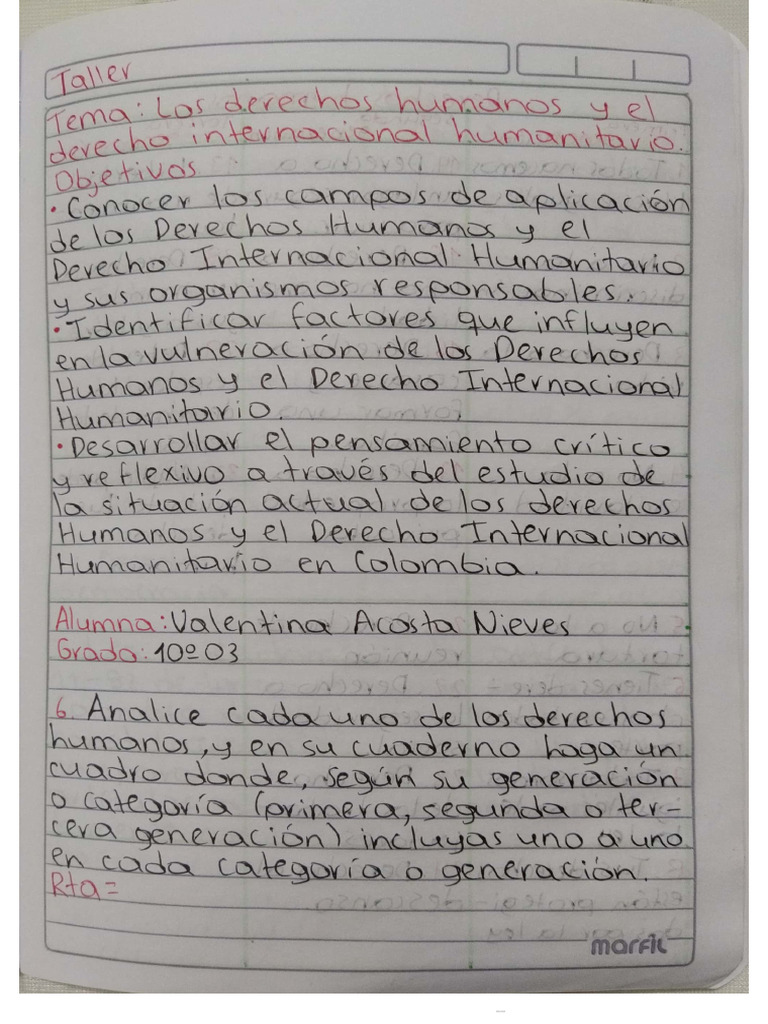 Taller
Tema: Los derechos humanos y el
derecho internacional humanitario.
Objetivos
• Conocer los campos de aplicación
de los Derechos Humanos y el
Derecho Internacional Humanitario
y sus organismos responsables.
• Identificar factores que influyen
en la vulneración de los Derechos
Humanos y el Derecho Internacional
Humanitario.
• Desarrollar el pensamiento crítico
y reflexivo a través del estudio de
la situación actual de los derechos
Humanos y el Derecho Internacional
Humanitario en Colombia.
Alumna: Valentina Acosta Nieves
Grado: 10º03
6. Analice cada uno de los derechos
humanos, y en su cuaderno haga un
cuadro donde, según su generación
o categoría (primera, segunda o ter-
cera generación) incluyas uno a uno
en cada categoría o generación.
Rta=
marfil